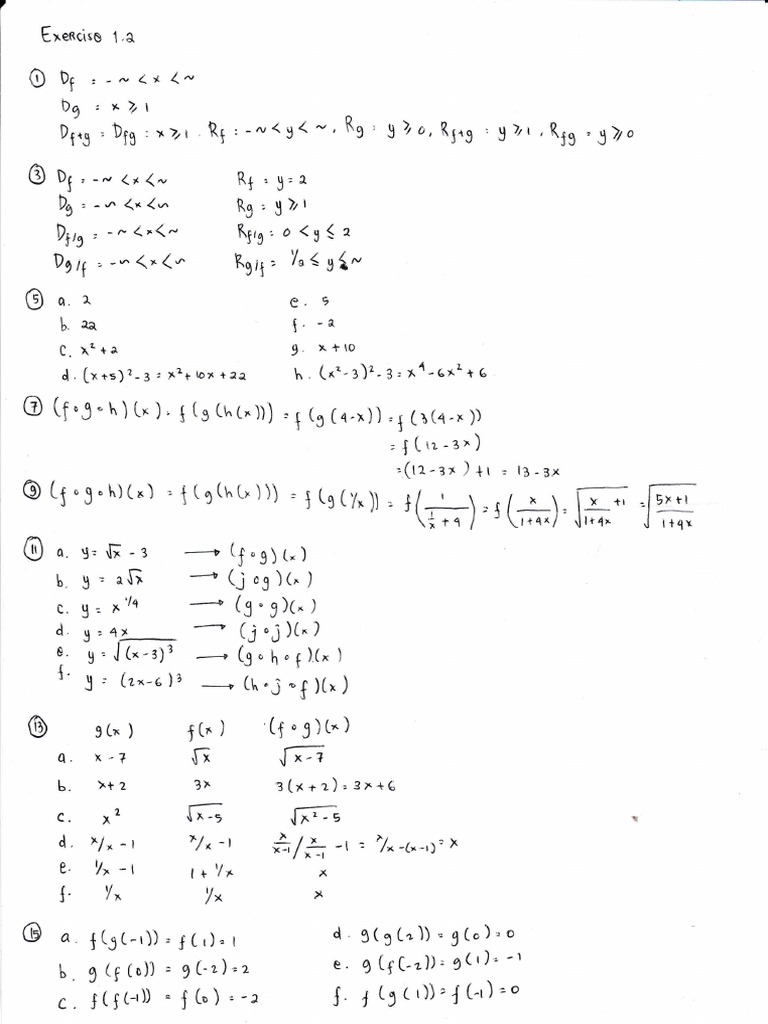 Exercise 1.2
① Df = -~ < x < ~
Dg = x ⩾ 1
Df+g = Dfg : x ⩾ 1 . Rf : -~ < y < ~ , Rg : y ⩾ 0, Rf+g : y ⩾ 1 , Rfg = y ⩾ 0
③ Df = -~ < x < ~ Rf = y = 2
Dg = -~ < x < ~ Rg : y ⩾ 1
Df/g = -~ < x < ~ Rf/g : 0 < y ≤ 2
Dg/f = -~ < x < ~ Rg/f = 1/2 ≤ y ≤ ~
⑤ a. 2 e. 5
b. 22 f. -2
c. x² + 2 g. x + 10
d. (x+5)² - 3 = x² + 10x + 22 h. (x² - 3)² - 3 = x⁴ - 6x² + 6
⑦ (f∘g∘h)(x) = f(g(h(x))) = f(g(4-x)) = f(3(4-x))
= f(12-3x)
= (12-3x) + 1 = 13-3x
⑨ (f∘g∘h)(x) = f(g(h(x))) = f(g(1/x)) = f(1/(1/x + 4)) = f(x/(1+4x)) = √(x/(1+4x) + 1) = √((5x+1)/(1+4x))
⑪ a. y = √x - 3 → (f∘g)(x)
b. y = 2√x → (j∘g)(x)
c. y = x^1/4 → (g∘g)(x)
d. y = 4x → (j∘j)(x)
e. y = √(x-3)³ → (g∘h∘f)(x)
f. y = (2x-6)³ → (h∘j∘f)(x)
⑬ g(x) f(x) (f∘g)(x)
a. x - 7 √x √(x-7)
b. x+2 3x 3(x+2) = 3x+6
c. x² √(x-5) √(x²-5)
d. x/x-1 x/x-1 x/(x-1) / x/(x-1) - 1 = x/x-(x-1) = x
e. 1/x - 1 1 + 1/x x
f. 1/x 1/x x
⑮ a. f(g(-1)) = f(1) = 1 d. g(g(2)) = g(0) = 0
b. g(f(0)) = g(-2) = 2 e. g(f(-2)) = g(1) = -1
c. f(f(-1)) = f(0) = -2 f. f(g(1)) = f(-1) = 0